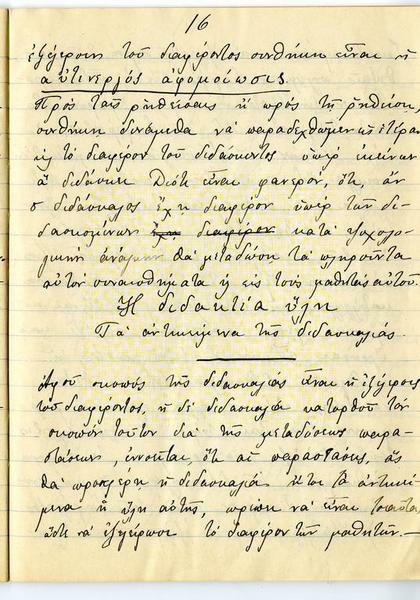 16
ἐξέγερσιν τοῦ διαφέροντος συνθήκη εἶναι ἡ
αὐτενεργὸς ἀφομοίωσις.
Πρὸς ταῖς ῥηθείσαις ἢ πρὸς τῇ ῥηθείσῃ,
συνθήκῃ δυνάμεθα νὰ παραδεχθῶμεν ὡς ἑτέραν
καὶ τὸ διαφέρον τοῦ διδάσκοντος ὑπὲρ ἐκείνων
ἃ διδάσκει. Διότι εἶναι φανερόν, ὅτι, ἂν
ὁ διδάσκαλος ἔχῃ διαφέρον ὑπὲρ τῶν δι-
δασκομένων ἔχῃ διαφέρον κατὰ ψυχολο-
γικὴν ἀνάγκην θὰ μεταδώσῃ τὰ πληροῦντα
αὐτὸν συναισθήματα ἢ εἰς τοὺς μαθητὰς αὐτοῦ.
Ἡ διδακτέα ὕλη
Τὰ ἀντικείμενα τῆς διδασκαλίας.
Ἀφοῦ σκοπὸς τῆς διδασκαλίας εἶναι ἡ ἐξέγερσις
τοῦ διαφέροντος, ἡ δὲ διδασκαλία κατορθοῖ τὸν
σκοπὸν τοῦτον διὰ τῆς μεταδόσεως παρα-
στάσεων, ἐννοεῖται, ὅτι αἱ παραστάσεις, ἃς
θὰ προσφέρῃ ἡ διδασκαλία ἤτοι τὰ ἀντικεί-
μενα ἢ ὕλη αὐτῆς, πρέπει νὰ εἶναι τοιαῦτα,
ὥστε νὰ ἐξεγείρωσι τὸ διαφέρον τῶν μαθητῶν.—